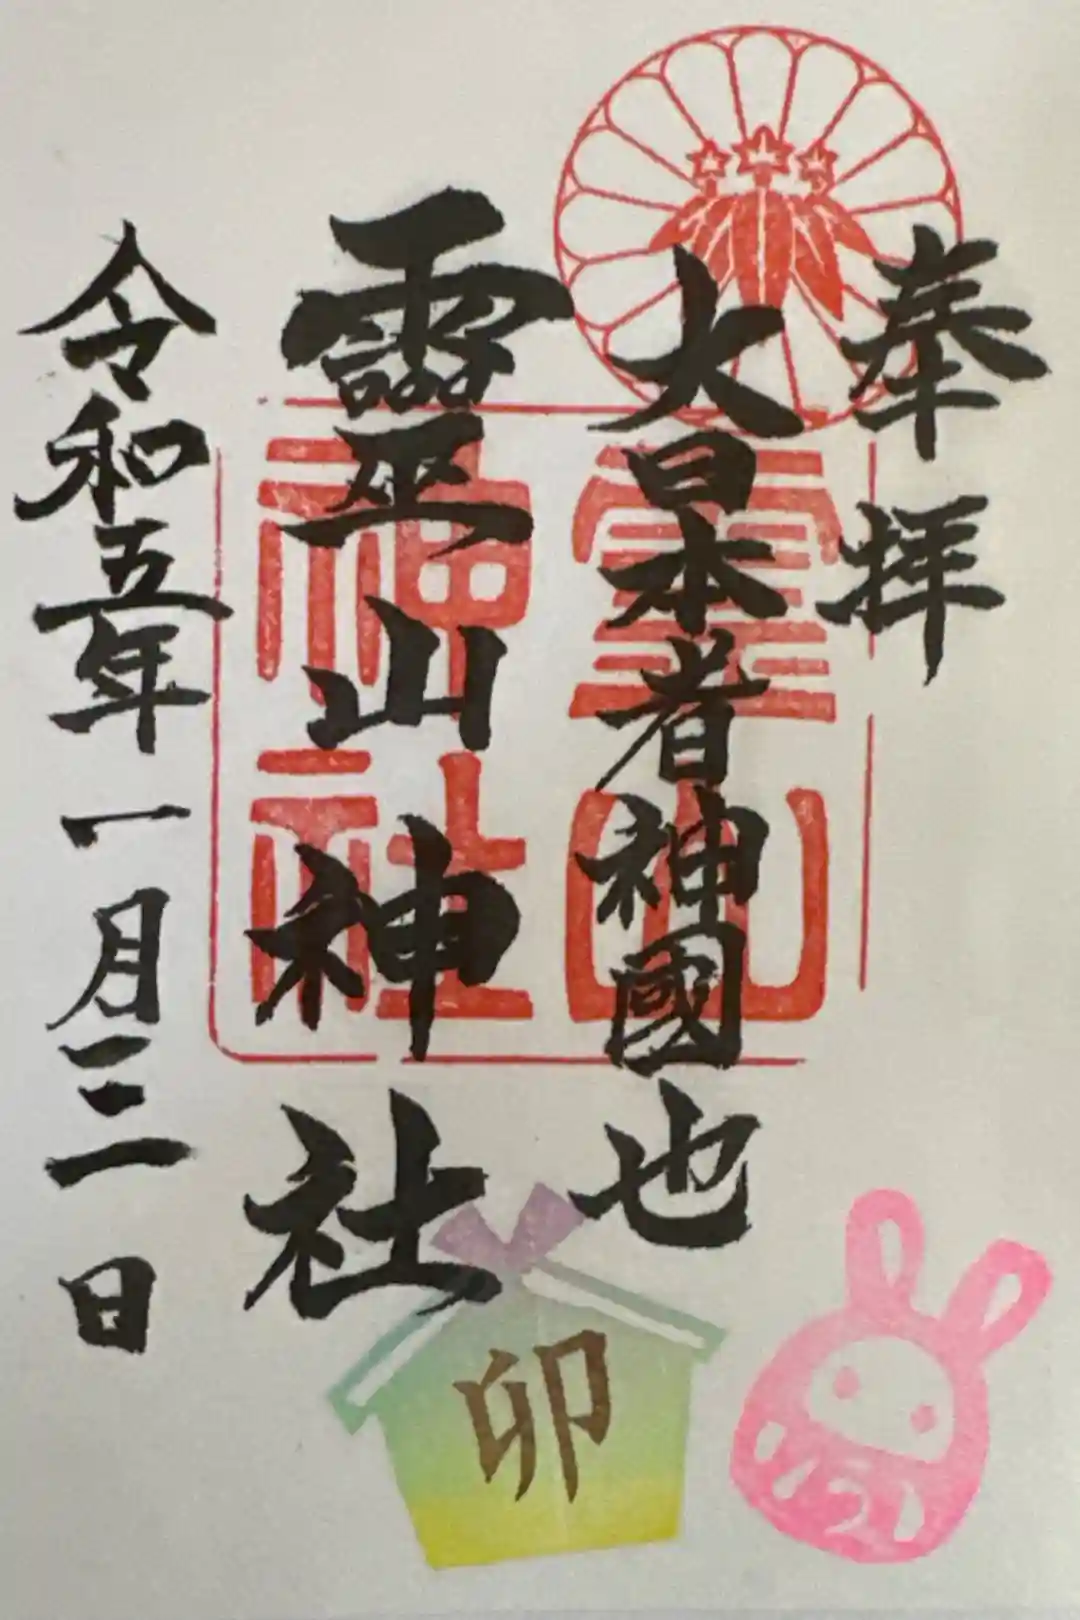 奉拝
大日本者神國也
靈山神社
令和五年一月三日
霊山神社
卯